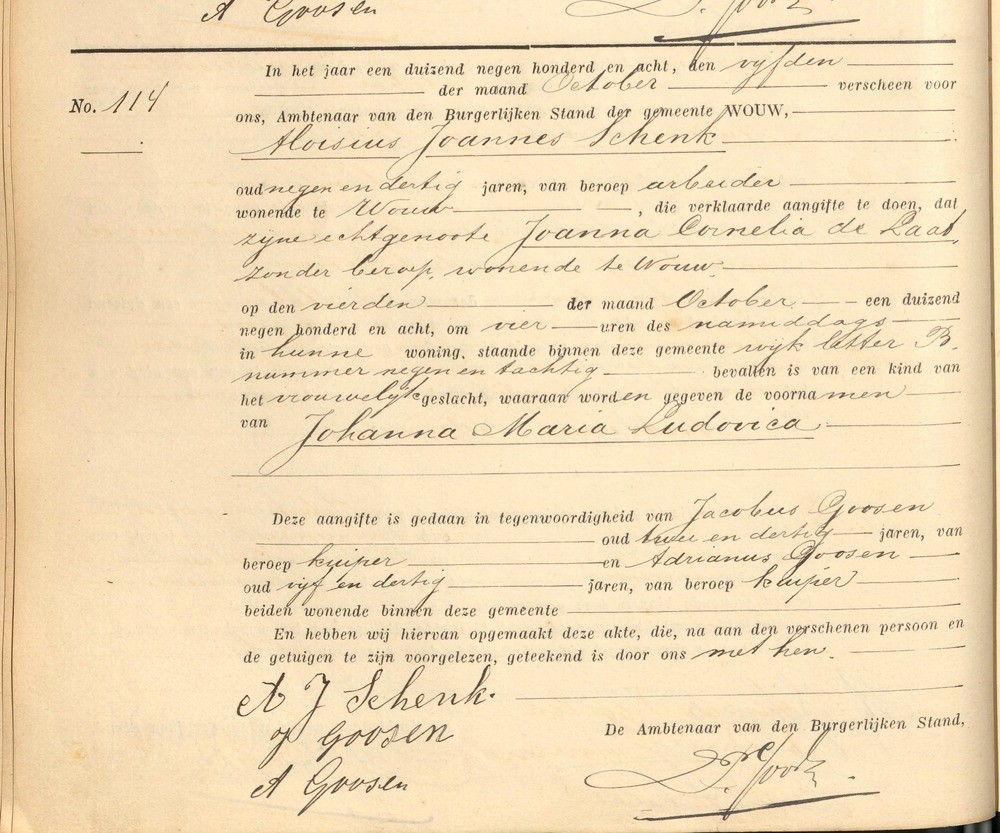 A Goosen
In het jaar een duizend negen honderd en acht, den vijfden
der maand October verscheen voor
No. 114
ons, Ambtenaar van den Burgerlijken Stand der gemeente WOUW,
Aloisius Joannes Schenk
oud negen en dertig jaren, van beroep arbeider
wonende te Wouw, die verklaarde aangifte te doen, dat
zijne echtgenoote Joanna Cornelia de Laat,
zonder beroep, wonende te Wouw
op den vierden der maand October een duizend
negen honderd en acht, om vier uren des namiddags
in hunne woning, staande binnen deze gemeente wijk letter B.
nummer negen en tachtig bevallen is van een kind van
het vrouwelijk geslacht, waaraan worden gegeven de voornamen
van Johanna Maria Ludovica
Deze aangifte is gedaan in tegenwoordigheid van Jacobus Goosen
oud twee en dertig jaren, van
beroep kuiper en Adrianus Goosen
oud vijf en dertig jaren, van beroep kuiper
beiden wonende binnen deze gemeente
En hebben wij hiervan opgemaakt deze akte, die, na aan den verschenen persoon en
de getuigen te zijn voorgelezen, geteekend is door ons met hen.
A J Schenk.
J Goosen
De Ambtenaar van den Burgerlijken Stand,
A Goosen